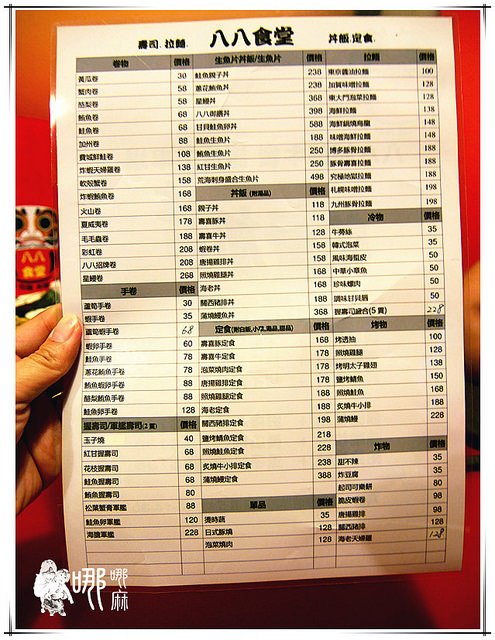 壽司.拉麵.
八八食堂
丼飯.定食.
卷物 價格
黃瓜卷 30
蟹肉卷 58
酪梨卷 58
鮪魚卷 68
鮭魚卷 68
加州卷 88
費城鮮鮭卷 108
炸蝦天婦羅卷 138
軟殼蟹卷 158
炸蝦鮪魚卷 168
火山卷 168
夏威夷卷 178
毛毛蟲卷 188
彩虹卷 208
八八招牌卷 208
星鰻卷 268
手卷 價格
蘆筍手卷 30
蝦手卷 35
蘆筍蝦手卷 68
蝦卵手卷 60
鮭魚手卷 78
蔥花鮪魚手卷 78
鮪魚蝦卵手卷 88
酪梨鮪魚手卷 88
鮭魚卵手卷 128
握壽司/軍艦壽司(2貫) 價格
玉子燒 40
紅甘握壽司 68
花枝握壽司 68
鮭魚握壽司 80
鮪魚握壽司 80
松葉蟹膏軍艦 88
鮭魚卵軍艦 120
海膽軍艦 228
生魚片丼飯/生魚片 價格
鮭魚親子丼 238
蔥花鮪魚丼 238
星鰻丼 368
八八御膳丼 398
甘貝鮭魚卵丼 588
鮭魚生魚片 188
鮪魚生魚片 250
紅甘生魚片 250
荒海刺身盛合生魚片 498
丼飯(附湯品) 價格
親子丼 118
壽喜豚丼 118
壽喜牛丼 128
蝦卷丼 158
唐揚雞排丼 158
照燒雞腿丼 168
海老丼 168
關西豬排丼 188
蒲燒鰻魚丼 368
定食(附白飯,小菜,湯品,甜品) 價格
壽喜豚定食 168
壽喜牛定食 178
泡菜燒肉定食 178
唐揚雞排定食 188
照燒雞腿定食 188
海老定食 198
關西豬排定食 198
鹽烤鯖魚定食 218
照燒鮭魚定食 228
炙燒牛小排定食 238
蒲燒鰻定食 388
單品 價格
燙時蔬 35
日式豚燒 128
泡菜燒肉 128
拉麵 價格
東京醬油拉麵 100
加賀味噌拉麵 128
東大門泡菜拉麵 128
海鮮拉麵 138
海鮮鍋燒烏龍 148
味噌海鮮拉麵 148
博多豚骨拉麵 188
豚骨壽喜拉麵 188
究極地獄拉麵 188
札幌味噌拉麵 198
九州豚骨拉麵 198
冷物 價格
牛蒡絲 35
韓式泡菜 35
風味海蜇皮 50
中華小章魚 50
珍味螺肉 50
調味甘貝唇 50
握壽司綜合(5貫) 228
烤物 價格
烤透抽 100
照燒雞腿 128
烤明太子雞翅 138
鹽烤鯖魚 150
照燒鮭魚 168
炙燒牛小排 188
蒲燒鰻 228
炸物 價格
甜不辣 35
炸豆腐 35
起司可樂餅 80
脆皮蝦卷 98
唐揚雞排 98
關西豬排 128
海老天婦羅 128
八八
食堂
哪哪麻